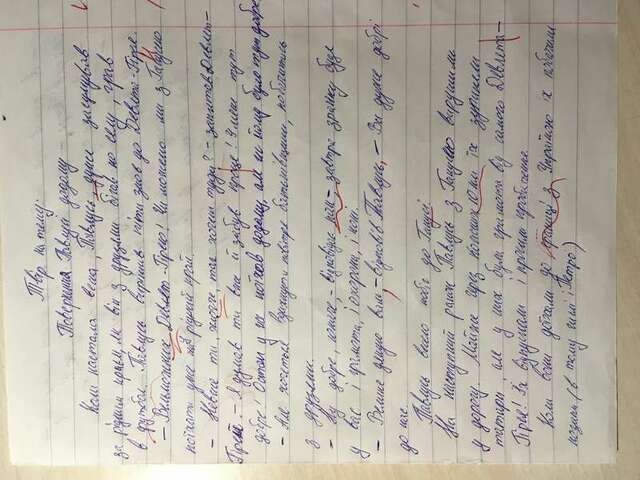 Твір на тему:
Повернення Павлуся додому
Коли настала весна, Павлусь, дуже засумував
за рідним краєм, як він з друзями бігав по селу, грав
в футбол. Павлусь вирішив піти знов до Девлета-Гірея.
– Вельможних Девлет-Гірею! Чи можемо ми з Ганусею
поїхати уже на рідний край.
– Невже ти, хлопче, так хочеш туди? – запитав Девлет-
Гірей. – Я думав ти вже й забув про це! У мене тут
добре! Остап у же поїхав додому, але й йому було тут добре
– Але хочеться вдихнути повітря батьківщини, побачитись
з друзями.
– Ну добре, юначе, – відповідає пан –, завтра зранку буде
у вас і грамота, і охорона, і коні.
– Велике дякую вам, – відповів Павлусь, – Ви дуже добрі
до нас.
Павлусь весело побіг до Ганусі.
На наступний ранок Павлусь з Ганусею вирушили
у дорогу. Майже через кожних 10 км їх зупиняли
татари, але у них були грамота від самого Девлета-
Гірея! Їх відпускали і просили пробачення.
Коли вони доїхали до границі з Україною їх побачили
козаки (в тому числі і Петро)